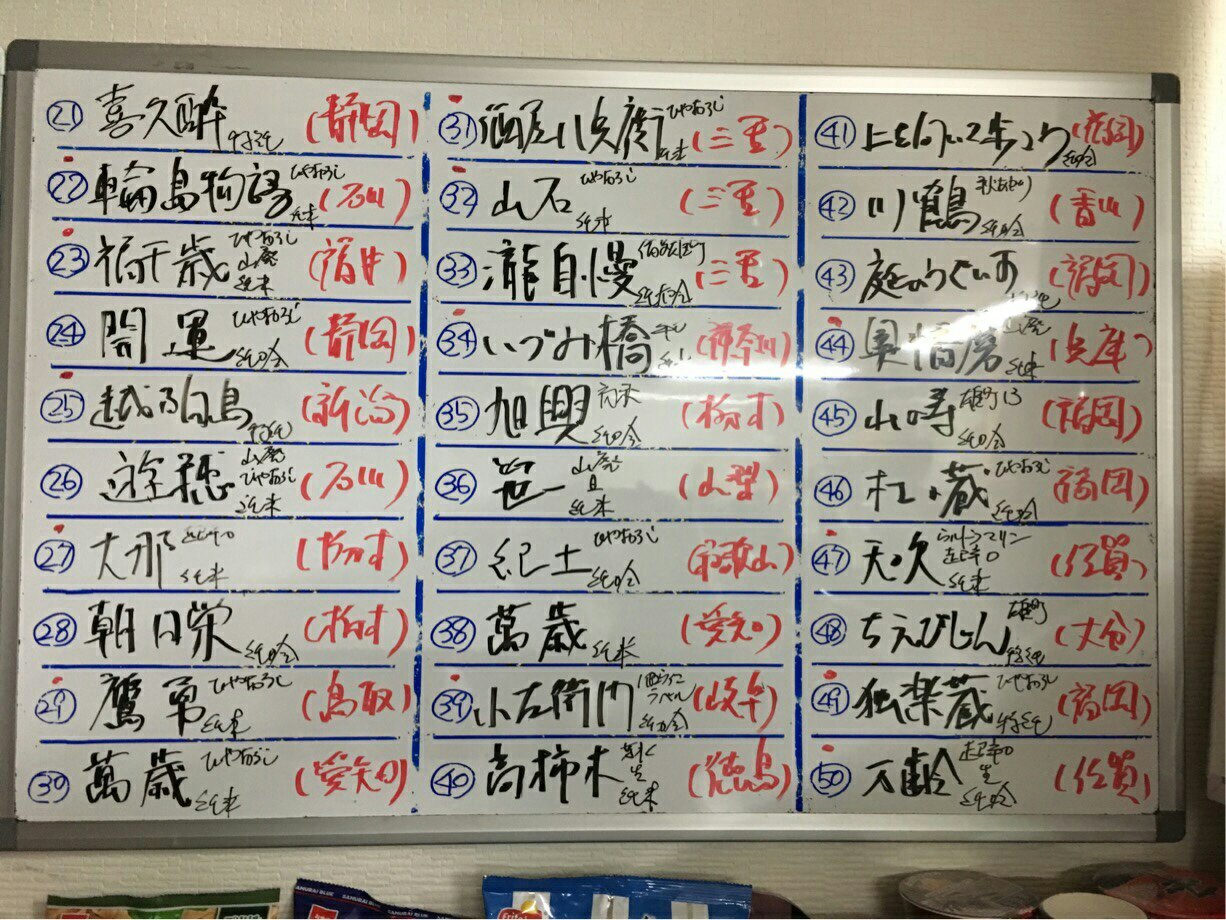 ㉑ 喜久酔 特純 (静岡)
㉒ 輪島物語 ひやおろし 純米 (石川)
㉓ 福千歳 ひやおろし 山廃 純米 (福井)
㉔ 開運 ひやおろし 純吟 (静岡)
㉕ 越乃白鳥 特純 (新潟)
㉖ 遊穂 山廃 ひやおろし 純米 (石川)
㉗ 大那 超辛口 純米 (栃木)
㉘ 朝日栄 純吟 (栃木)
㉙ 鷹勇 ひやおろし 純米 (鳥取)
㊴ 萬歳 ひやおろし 純米 (愛知)
㉛ 酒屋八兵衛 ひやおろし 純米 (三重)
㉜ 山石 ひやおろし 純米 (三重)
㉝ 瀧自慢 純大吟 (三重)
㉞ いづみ橋 (神奈川)
㉟ 旭興 純吟 (栃木)
㊱ 笹一 山廃 純米 (山梨)
㊲ 紀土 ひやおろし 純吟 (和歌山)
㊳ 萬歳 純米 (愛知)
㊴ 小左衛門 純吟 (岐阜)
㊵ 高柿木 生 純米 (徳島)
㊶ 上を向いて歩こう 純吟 (福岡)
㊷ 川鶴 秋あがり 純吟 (香川)
㊸ 庭のうぐいす 特純 (福岡)
㊹ 奥播磨 山廃 純米 (兵庫)
㊺ 山の寿 雄町 13 純吟 (福岡)
㊻ 杜の蔵 ひやおろし 純吟 (福岡)
㊼ 天吹 ウルトラマリン 超辛口 純米 (佐賀)
㊽ ちえびじん 雄町 特純 (大分)
㊾ 独楽蔵 ひやおろし 特純 (福岡)
㊿ 万齢 超辛口 生 純吟 (佐賀)
SAMURAI BLUE SAMURAI BLUE
Frito